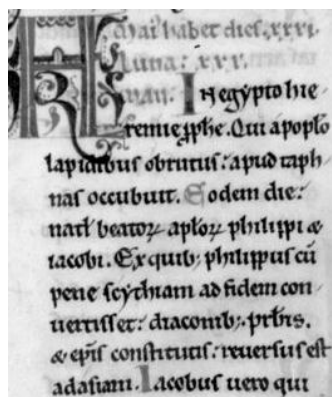 Mai' habet dies. xxxi.
Luna: xxx.
In egypto hie
remie ꝓphe. Qui apoplo
lapidibus obrutus: apud taph
nas occubuit. Eodem die:
natł beatoꝝ apłoꝝ philippi &
iacobi. Ex quib; philippus cū
pene scythiam ad fidem con
uertisset: diaconib;. prbīs.
& epīs constitutis: reuersus est
adasiam. Iacobus uero qui